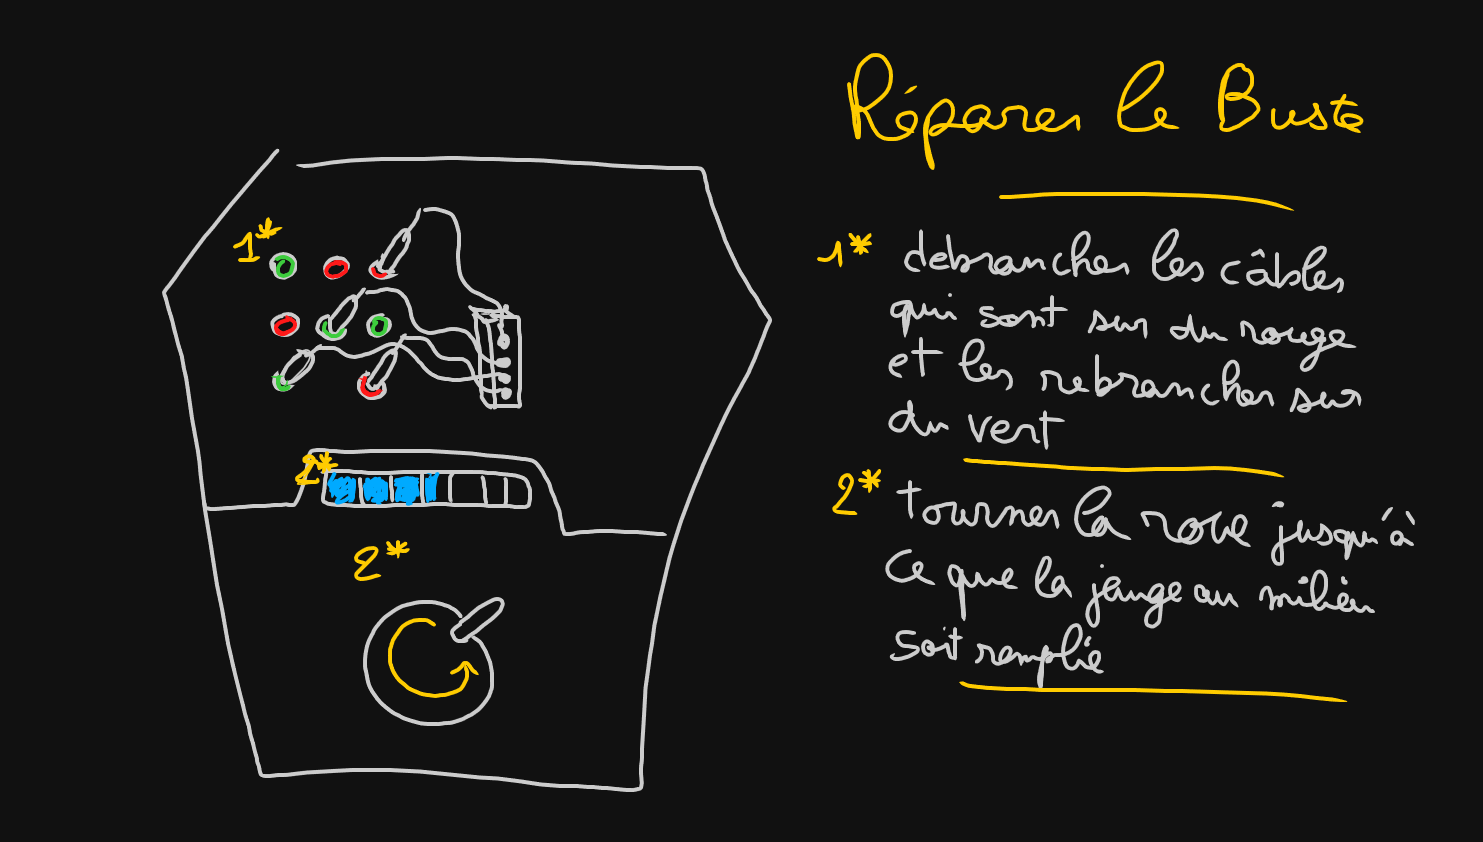 Réparer le Buste
1*
1* debrancher les câbles
qui sont sur du rouge
et les rebrancher sur
du vent
2*
2* tourner la roue jusqu'à
ce que la jauge au milieu
soit remplie
2*